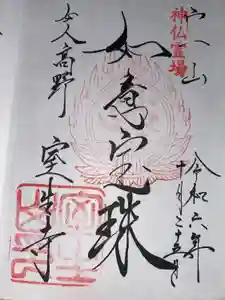 宀一山
神仏霊場
令和六年
十一月二十五日
如意宝珠
女人高野
室生寺